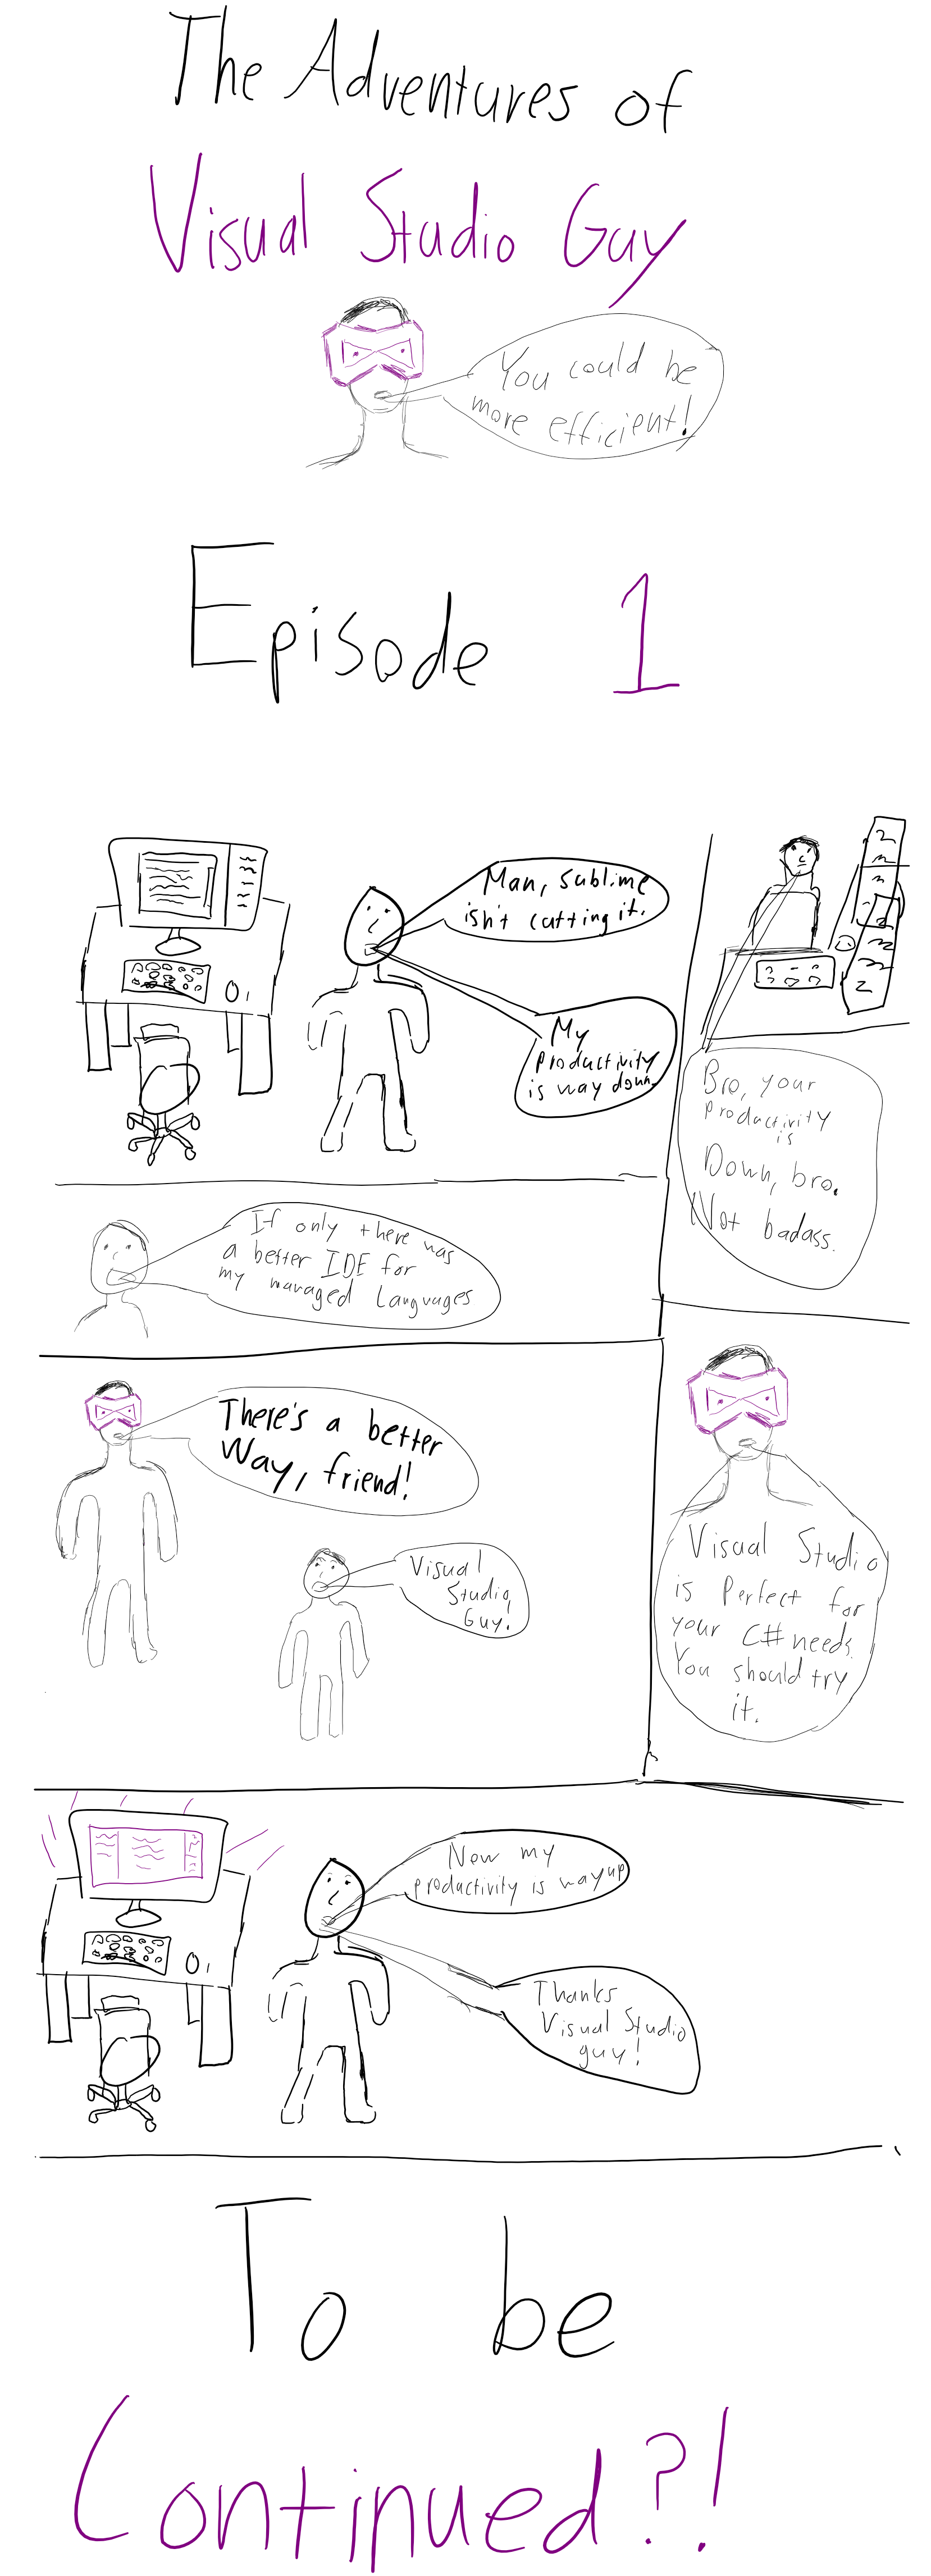 The Adventures of
Visual Studio Guy
You could be
more efficient!
Episode 1
Man, sublime
isn't cutting it.
My
productivity
is way down.
Bro, your
productivity
is
Down, bro.
Not badass.
If only there was
a better IDE for
my managed Languages
There's a better
Way, friend!
Visual
Studio
Guy!
Visual Studio
is Perfect for
your C# needs.
You should try
it.
Now my
productivity is way up
Thanks
Visual Studio
guy!
To be
Continued?!